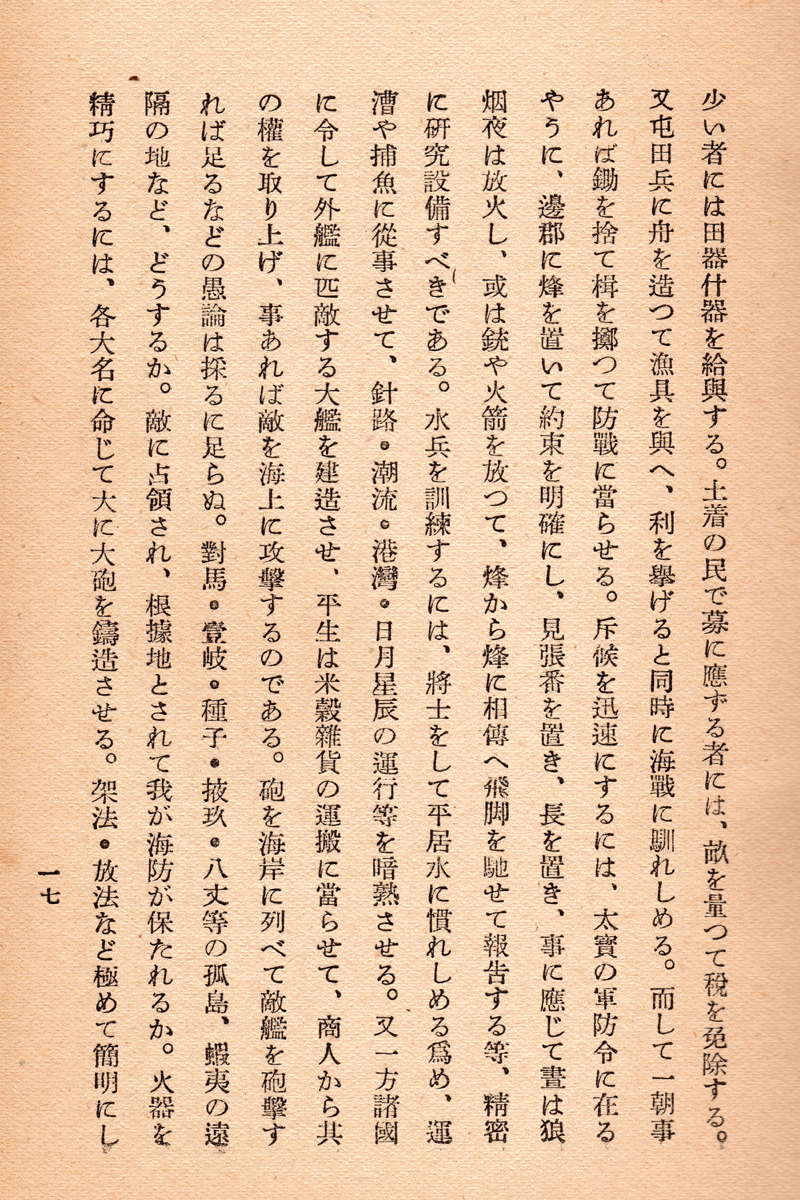 少い者には田器什器を給與する。土着の民で募に應ずる者には、畝を量つて税を免除する。
又屯田兵に舟を造つて漁具を與へ、利を擧げると同時に海戰に馴れしめる。而して一朝事
あれば鋤を捨て楫を擲つて防戰に當らせる。斥候を迅速にするには、太寳の軍防令に在る
やうに、邊郡に烽を置いて約束を明確にし、見張番を置き、長を置き、事に應じて晝は狼
烟夜は放火し、或は銃や火箭を放つて、烽から烽に相傳へ飛脚を馳せて報告する等、精密
に研究設備すべきである。水兵を訓練するには、將士をして平居水に慣れしめる爲め、運
漕や捕魚に從事させて、針路・潮流・港灣・日月星辰の運行等を暗熟させる。又一方諸國
に令して外艦に匹敵する大艦を建造させ、平生は米穀雜貨の運搬に當らせて、商人から其
の權を取り上げ、事あれば敵を海上に攻擊するのである。砲を海岸に列べて敵艦を砲擊す
れば足るなどの愚論は採るに足らぬ。對馬・壹岐・種子・掖玖・八丈等の孤島、蝦夷の遠
隔の地など、どうするか。敵に占領され、根據地とされて我が海防が保たれるか。火器を
精巧にするには、各大名に命じて大に大砲を鑄造させる。架法・放法など極めて簡明にし
一七